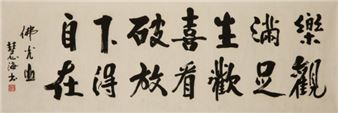 樂觀
滿足
生歡
喜看
破放
下得
自在
佛光
海书